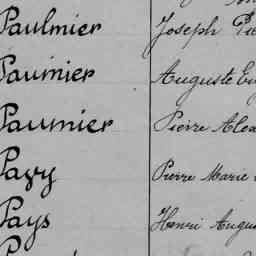 Paulmier Joseph
Paumier Auguste
Paumier Pierre
Pavy Pierre Marie
Pays Henri